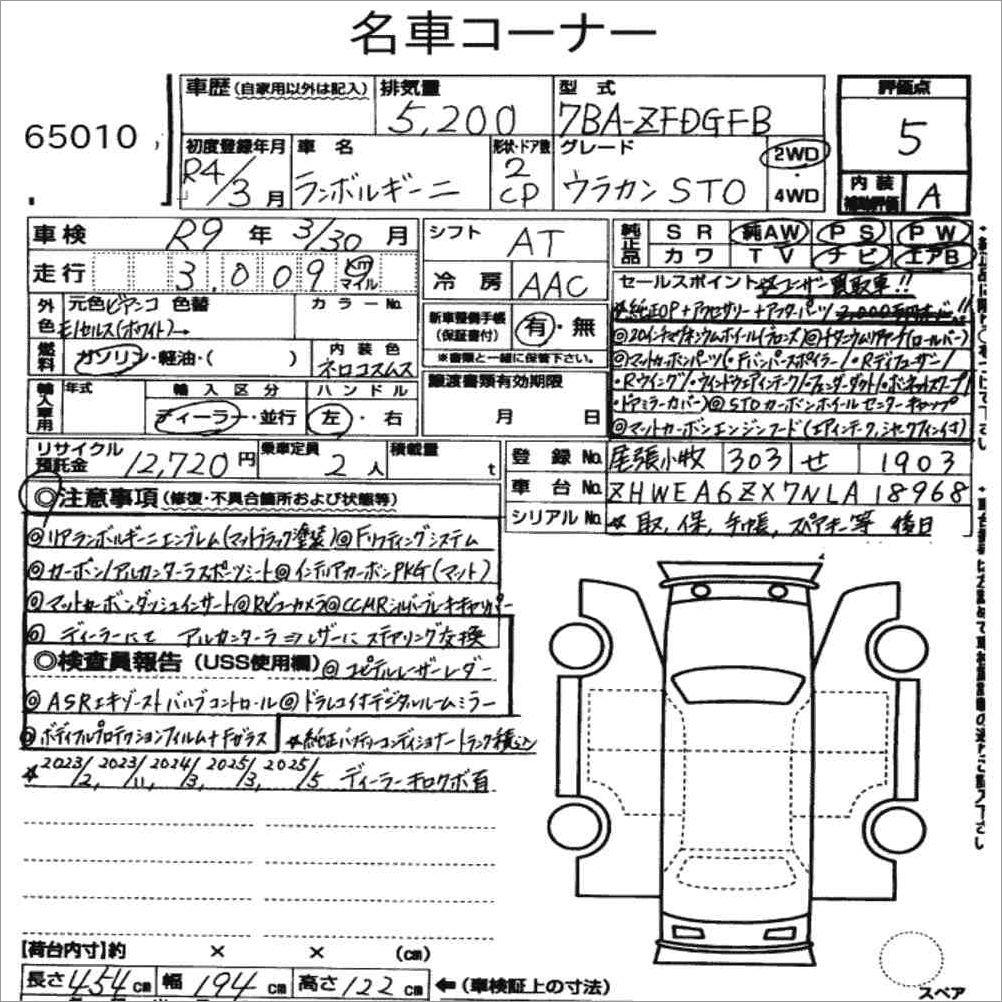 名車コーナー
65010
車歴 (自家用以外は記入) 排気量 5,200 型式 7BA-ZFDGFB 評価点 5
初度登録年月 R4/3月 車名 ランボルギーニ 形状・ドア数 2 CP グレード ウラカン STO 2WD・4WD 内装補助評価 A
車検 R9年 3/30月 シフト AT 純正品 SR 純AW PS PW
走行 3,009 KM マイル 冷房 AAC カワ TV ナビ エアB
外色 元色 ビアンコ 色替 カラーNo.
モノセルス(ホワイト)→
新車整備手帳(保証書付) 有・無
※書類と一緒に保管下さい。
燃料 ガソリン・軽油・( ) 内装色 ネロコスムス
輸入車用 年式 輸入区分 ディーラー・並行 ハンドル 左・右
譲渡書類有効期限 月 日
セールスポイント ☆ユーザー買取車!!
☆純正OP+アクセサリー+アフターパーツ
◎20インチマグネシウムホイール(ブロンズ)◎チタニウムリヤアーチ(ロールバー)
◎マットカーボンパーツ(・Fバンパースポイラー/・Rディフューザー/
・Rウイング/・ウインドウェアインテーク/・フェンダーダクト/・ボンネットスクープ/
・ドアミラーカバー)◎STOカーボンホイールセンターキャップ
◎マットカーボンエンジンフード(エアインテーク,シャークフィン付)
リサイクル預託金 12,720円 乗車定員 2人 積載量 t
登録No. 尾張小牧 303 せ 1903
車台No. ZHWEA6ZX7NLA18968
シリアルNo. ☆取,保,手帳,スペアキー等 後日
◎注意事項 (修復・不具合箇所および状態等)
◎リアランボルギーニエンブレム(マットブラック塗装)◎Fリフティングシステム
◎カーボン/アルカンターラスポーツシート◎インテリアカーボンPKG(マット)
◎マットカーボンダッシュインサート◎Rビューカメラ◎CCMRシルバーブレーキキャリパー
◎ディーラーにて アルカンターラ⇒レザーに ステアリング交換
◎検査員報告 (USS使用欄) ◎ユピテルレーザーレーダー
◎ASRエキゾーストバルブコントロール◎ドラレコ付デジタルルームミラー
◎ボディフルプロテクションフィルム+Fガラス ☆純正バッテリーコンディショナートランク積込
☆2023/2, 2023/11, 2024/3, 2025/3, 2025/5 ディーラーキロクボ有
【荷台内寸】約 × × (cm)
長さ 454 cm 幅 194 cm 高さ 122 cm ←(車検証上の寸法)
スペア